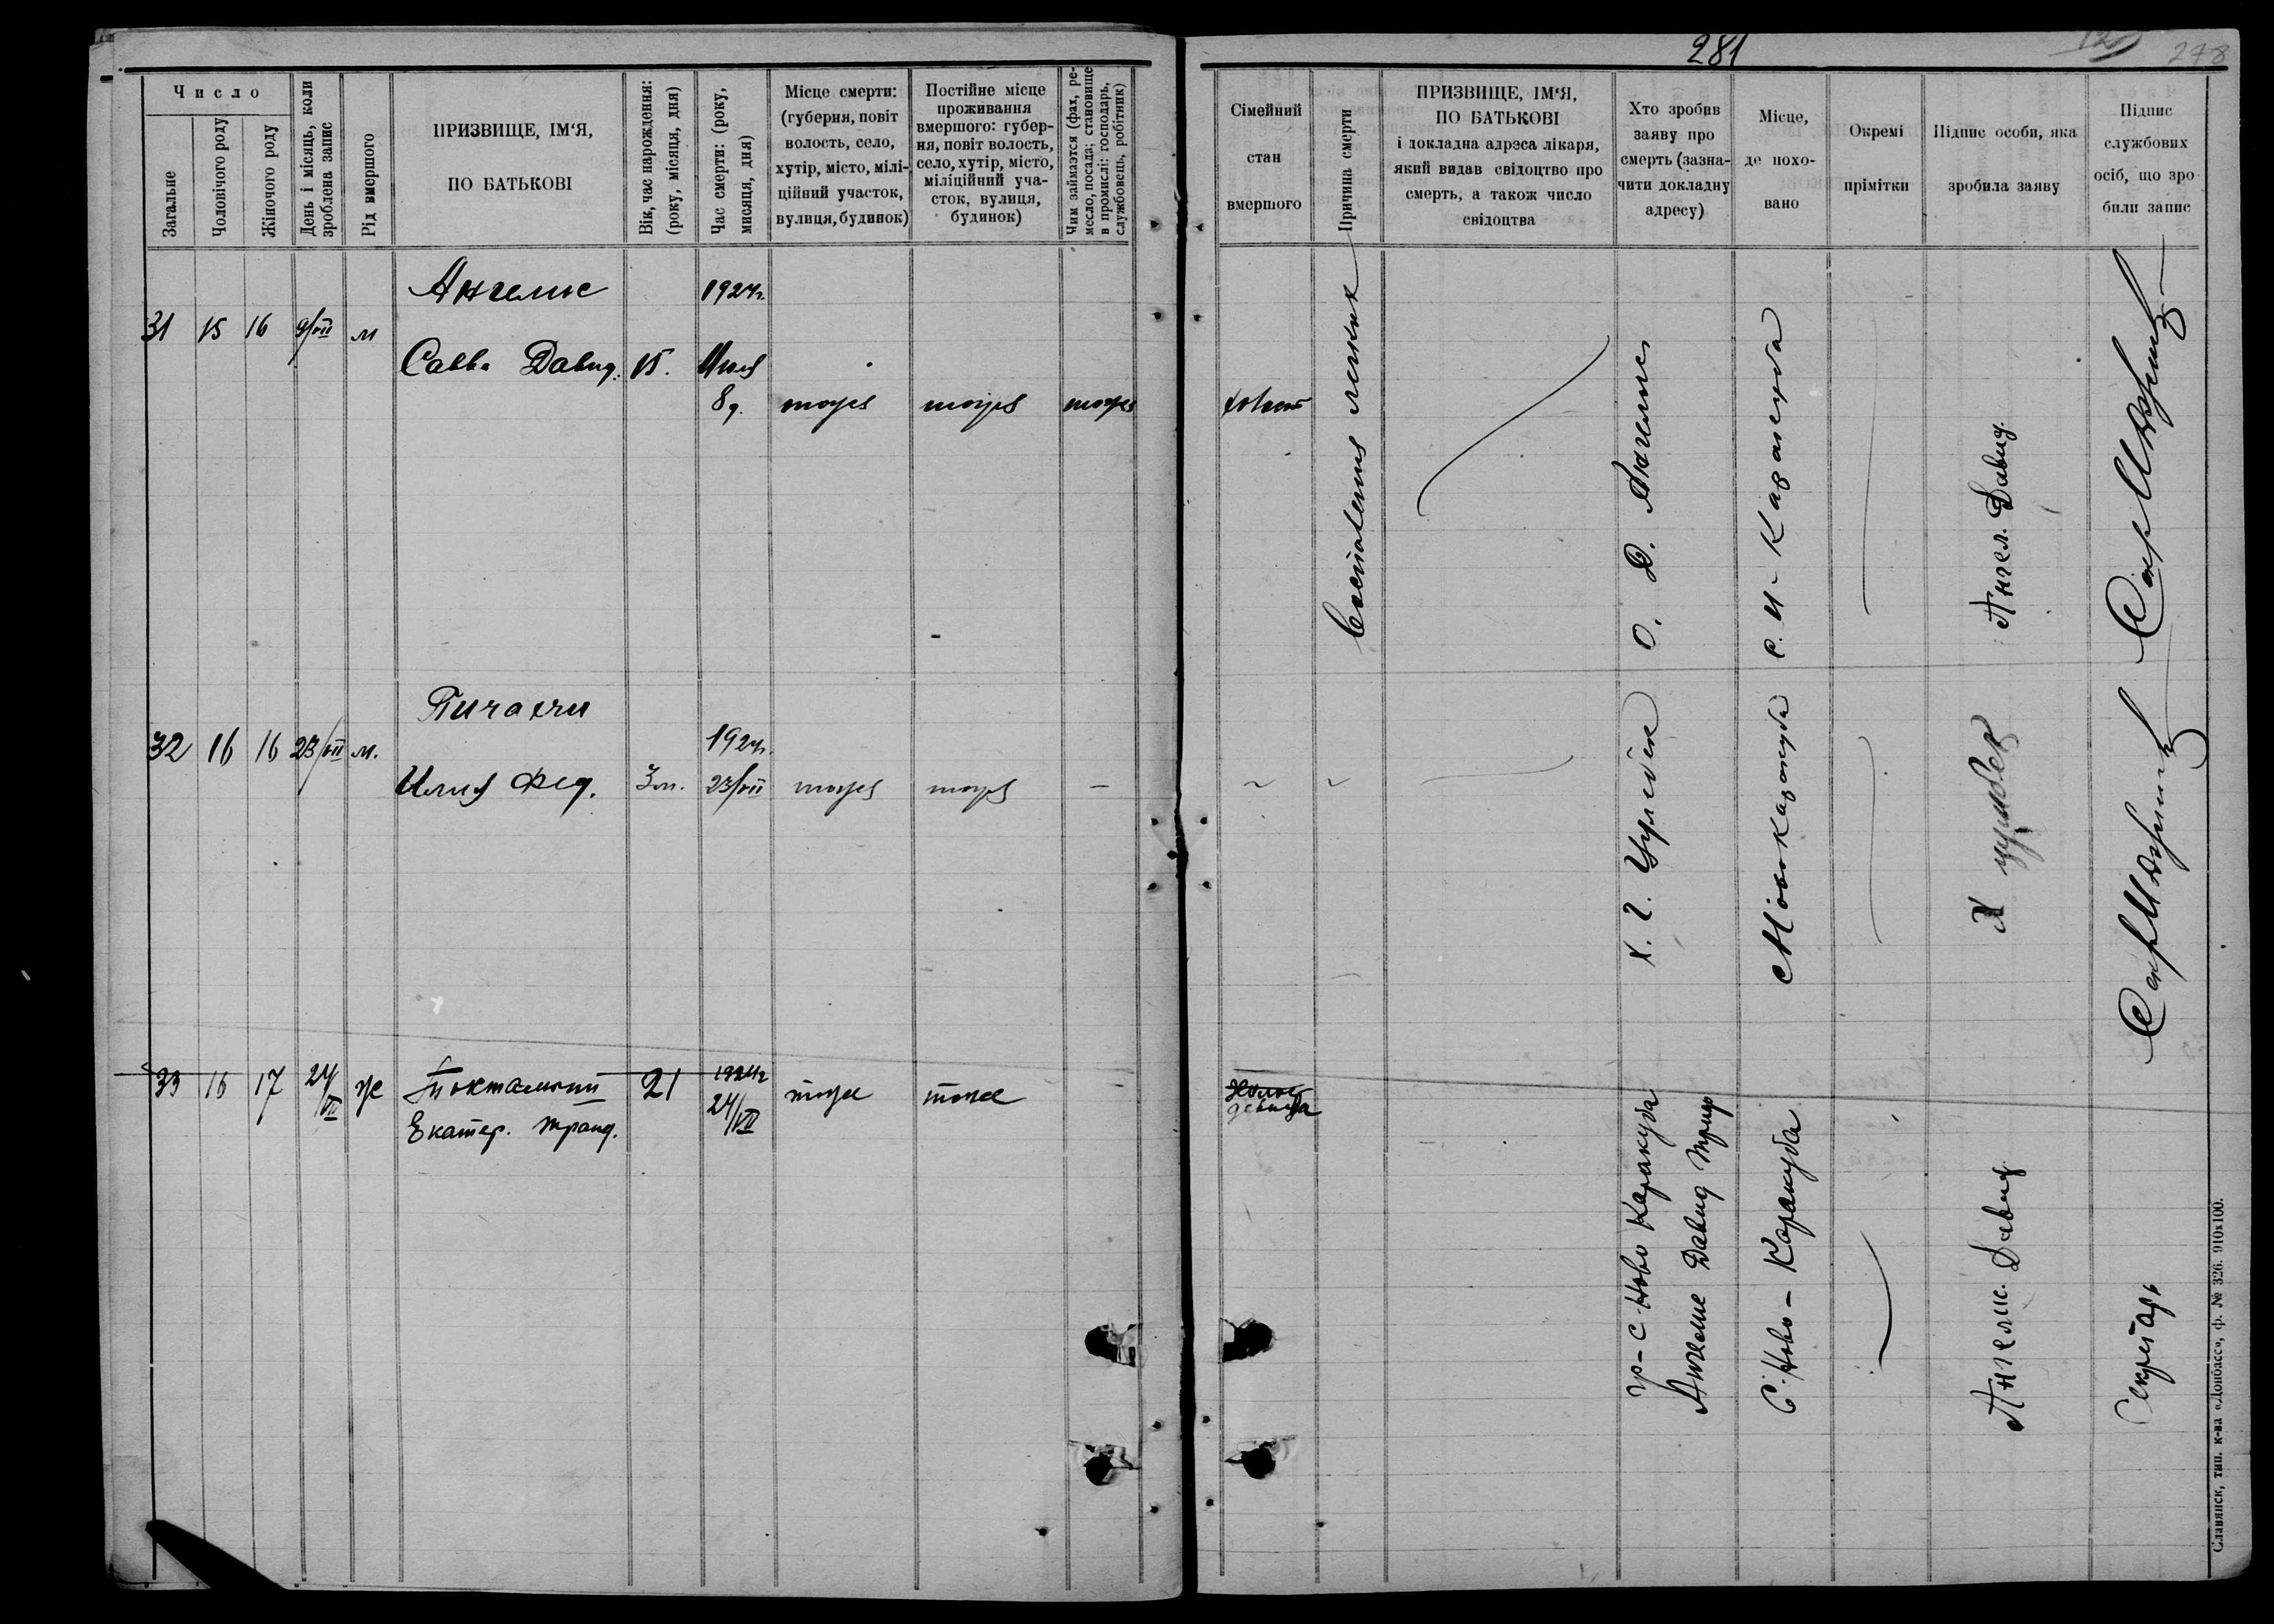 281
278
Число
Загальне
Чоловічого роду
Жіночого роду
День і місяць, коли
зроблена запис
Рід вмершого
ПРИЗВИЩЕ, ІМ‘Я,
ПО БАТЬКОВІ
Вік, час народження:
(року, місяця, дня)
Час смерти: (року,
мисяця, дня)
Місце смерти:
(губерня, повіт
волость, село,
хутір, місто, мілі-
ційний участок,
вулиця, будинок)
Постійне місце
проживання
вмершого: губер-
ня, повіт волость,
село, хутір, місто,
міліційний уча-
сток, вулиця,
будинок)
Чим займаэтся (фах, ре-
месло, посада; становище
в промислі: господарь,
службовець, робітник)
Сімейний
стан
вмершого
Причина смерти
ПРИЗВИЩЕ, ІМ‘Я,
ПО БАТЬКОВІ
і докладна адрэса лікаря,
який видав свідоцтво про
смерть, а також число
свідоцтва
Хто зробив
заяву про
смерть (зазна-
чити докладну
адресу)
Місце,
де похо-
вано
Окремі
прімітки
Підпис особи, яка
зробила заяву
Підпис
службових
осіб, що зро
били запис
31 15 16 9/VII м
Ангелис
Савва Давид. 15.
1924г.
Июля
8д.
тоже тоже тоже
холост
Воспаление легких
О. Д. Ангелис
с. Н- Каракуба
Ангел. Давид.
32 16 16 23/VII м.
Пичахчи
Илия Фед. 3м.
1924г.
23/VII
тоже тоже —
Х. Г. Цурубек
с Ново Каракуба
Х цурубек
33 16 17 24/VII ж
Токтамыш
Екатер. 21
1924г
24/VII
тоже тоже
девица
гр-с. Ново Каракуба
Ангелис Давид
С. Ново-Каракуба
Ангелис. Давид.
Секретарь
Славянск, тип. к-ва «Донбасс», ф. № 326. 910х100.